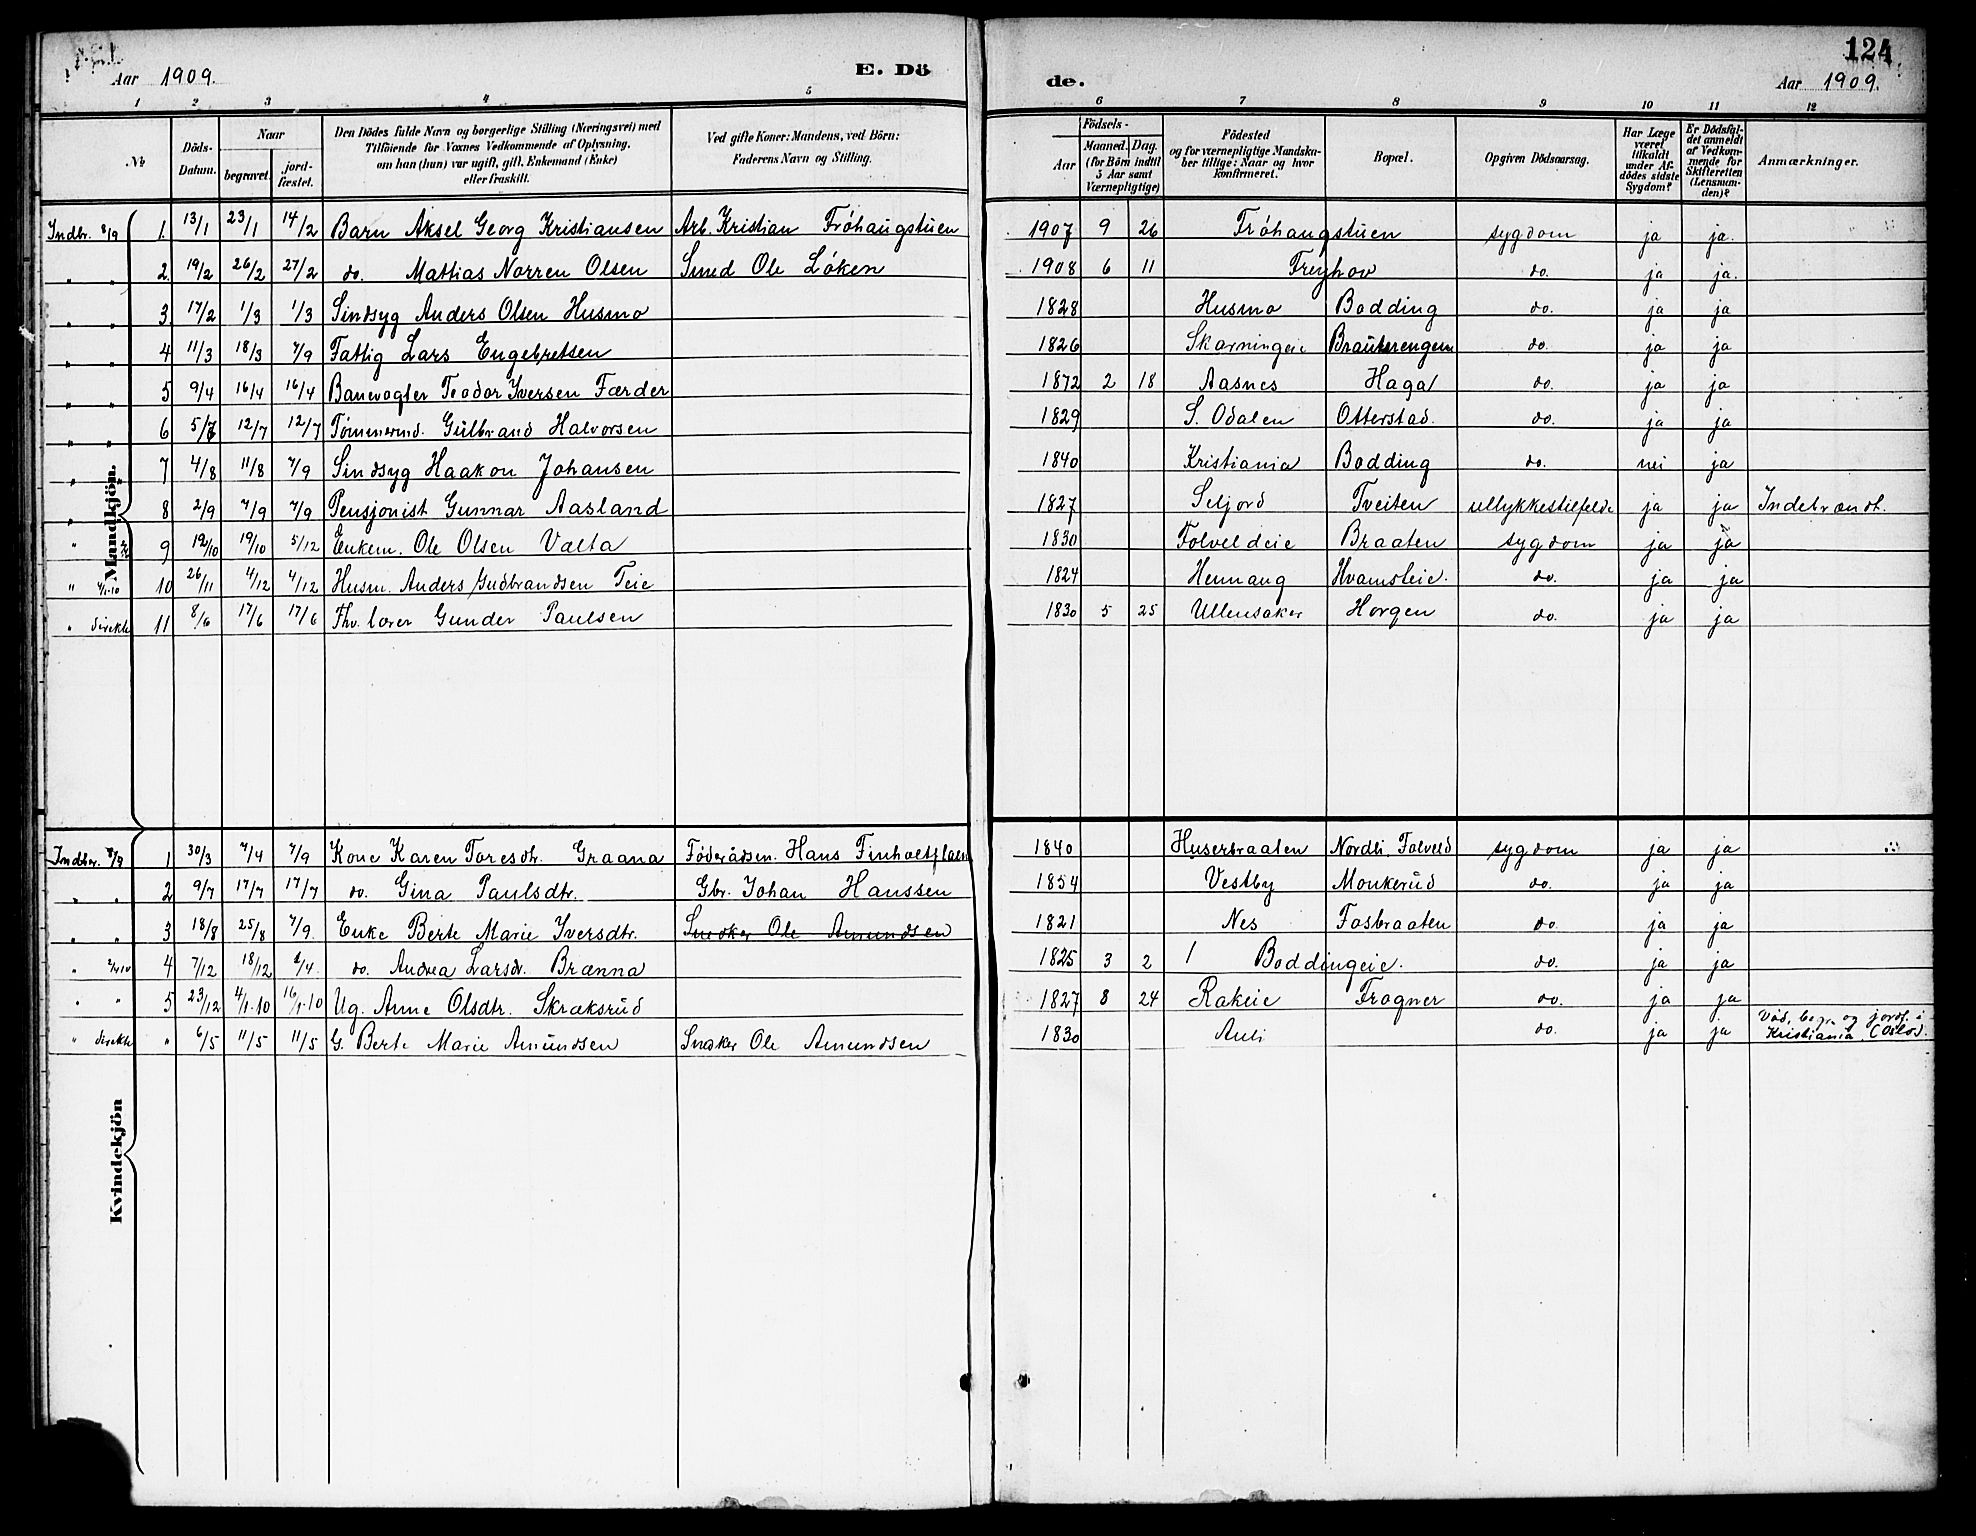 124
Aar 1909. E. Dö de. Aar 1909.
1 2 3 4 5 6 7 8 9 10 11 12
No
Döds-Datum.
Naar
begravet.
jord-fæstet.
Den Dödes fulde Navn og borgerlige Stilling (Næringsvei) med
Tilföiende for Voxnes Vedkommende af Oplysning,
om han (hun) var ugift, gift, Enkemand (Enke)
eller fraskilt.
Ved gifte Koner: Mandens, ved Börn:
Faderens Navn og Stilling.
Födsels-
Aar
Maaned. Dag.
(for Börn indtil
5 Aar samt
Værnepligtige)
Födested
og for værnepligtige Mandska-
ber tillige: Naar og hvor
konfirmeret.
Bopæl.
Opgiven Dödsaarsag.
Har Læge
været
tilkaldt
under Af-
dödes sidste
Sygdom?
Er Dödsfal-
det anmeldt
af Vedkom-
mende for
Skifteretten
(Lensman-
den)?
Anmærkninger.
Mandkjön.
Indbr. 8/9 1. 13/1 23/1 14/2 Barn Aksel Georg Kristiansen Arb. Kristian Fröhaugstuen 1907 9 26 Fröhaugstuen sygdom ja ja.
" " 2. 19/2 26/2 27/2 do. Mattias Norren Olsen Smed Ole Löken 1908 6 11 Freyhov do. ja ja.
" " 3. 17/2 1/3 1/3 Sindsyg Anders Olsen Husmo 1828 Husmo Bodding do. ja ja
" " 4 11/3 18/3 7/9 Fattig Lars Engebretsen 1826 Skarningeie do. ja ja
" " 5 9/4 16/4 16/4 Banevogter Teodor Iversen Færder 1872 2 18 Aasnes Haga do. ja ja
" " 6 5/7 12/7 12/7 Tömmermd. Gulbrand Halvorsen 1829 S. Odalen Otterstad. do. ja ja
" " 7 4/8 11/8 7/9 Sindsyg Haakon Johansen 1840 Kristiania Bodding do. nei ja
" 8 2/9 7/9 7/9 Pensjonist Gunnar Aasland 1827 Seljord Tveiten ullykkestilfelde ja ja Indebrændt.
" 9 12/10 19/10 5/12 Enkem. Ole Olsen Valta 1830 Folveldeie Braaten sygdom ja ja
" 4/1-10 10 26/11 4/12 4/12 Husm. Anders Gudbrandsen Teie 1824 Hennaug Hvamsleie. do. ja ja
" direkte 11 8/6 17/6 17/6 Fhv. lærer Gunder Paulsen 1830 5 25 Ullensaker Horgen do. ja ja
Kvindekjön
Indber. 8/9 1 30/3 7/4 7/9 Kone Karen Toresdtr. Graana Föderådsm. Hans 1840 Huserbraaten Nordli, Folveld sygdom ja ja
" " 2 9/7 17/7 17/7 do. Gina Paulsdtr. Gbr. Johan Hanssen 1854 Vestby Monkerud do. ja ja
" " 3 18/8 25/8 7/9. Enke Berte Marie Iversdtr. Snedker Ole Amundsen 1821 Nes Fosbraaten do. ja ja
" 4 7/12 18/12 Andrea Larsdr. Brænna 1825 3 2 / Boddingeie. do. ja ja
" " 5 23/12 4/1-10 16/1-10 Ug. Anne Olsdtr. Skraksrud 1827 8 24 Rakeie Frogner do. ja ja
" direkte " 6/5 11/5 11/5 G. Berte Marie Amundsen Snedker Ole Amundsen 1830 Auli do. ja ja Död, begr. og jordf. i
Kristiania (Oslo).